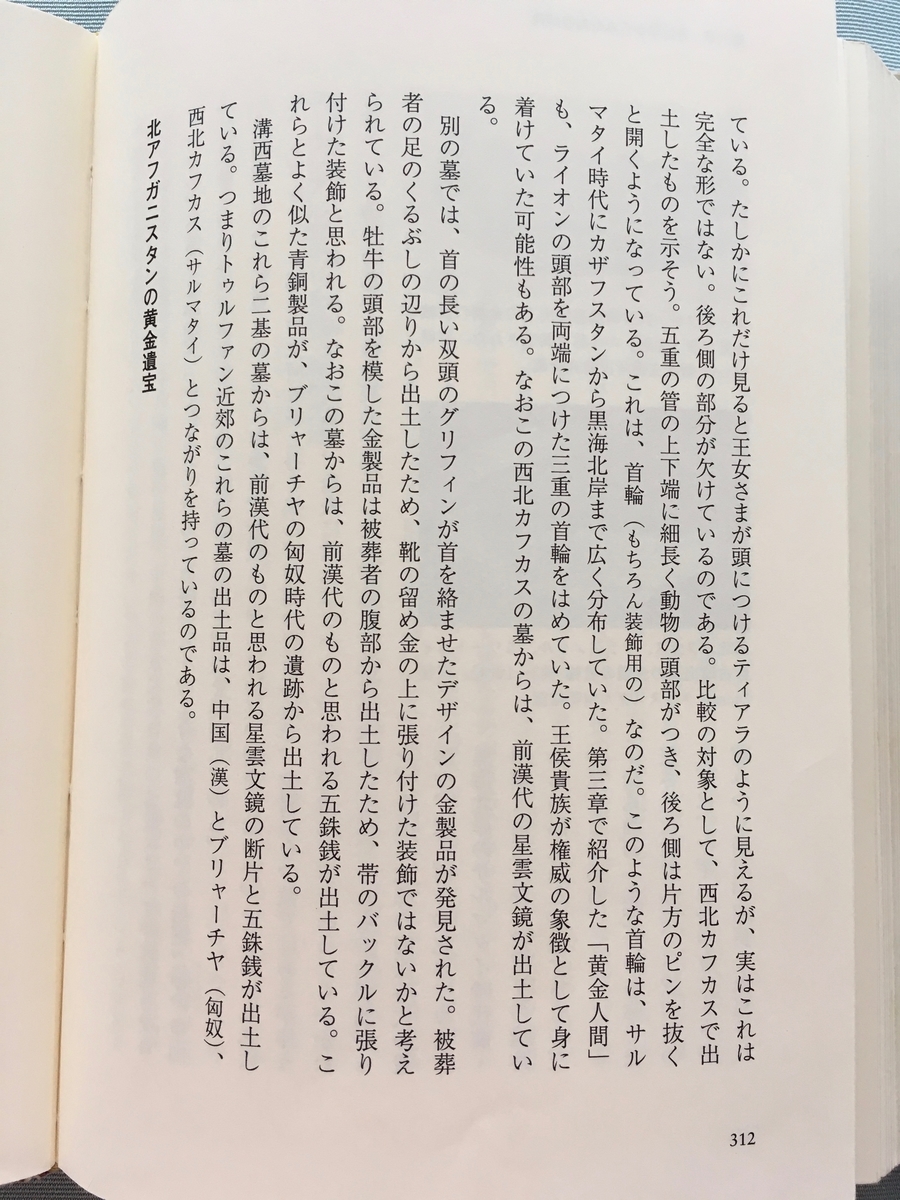 ている。たしかにこれだけ見ると王女さまが頭につけるティアラのように見えるが、実はこれは
完全な形ではない。後ろ側の部分が欠けているのである。比較の対象として、西北カフカスで出
土したものを示そう。五重の管の上下端に細長く動物の頭部がつき、後ろ側は片方のピンを抜く
と開くようになっている。これは、首輪（もちろん装飾用の）なのだ。このような首輪は、サル
マタイ時代にカザフスタンから黒海北岸まで広く分布していた。第三章で紹介した「黄金人間」
も、ライオンの頭部を両端につけた三重の首輪をはめていた。王侯貴族が権威の象徴として身に
着けていた可能性もある。なおこの西北カフカスの墓からは、前漢代の星雲文鏡が出土してい
る。
別の墓では、首の長い双頭のグリフィンが首を絡ませたデザインの金製品が発見された。被葬
者の足のくるぶしの辺りから出土したため、靴の留め金の上に張り付けた装飾ではないかと考え
られている。牡牛の頭部を模した金製品は被葬者の腹部から出土したため、帯のバックルに張り
付けた装飾と思われる。なおこの墓からは、前漢代のものと思われる五銖銭が出土している。こ
れらとよく似た青銅製品が、ブリャーチヤの匈奴時代の遺跡から出土している。
溝西墓地のこれら二基の墓からは、前漢代のものと思われる星雲文鏡の断片と五銖銭が出土し
ている。つまりトゥルファン近郊のこれらの墓の出土品は、中国（漢）とブリャーチヤ（匈奴）、
西北カフカス（サルマタイ）とつながりを持っているのである。
北アフガニスタンの黄金遺宝
312